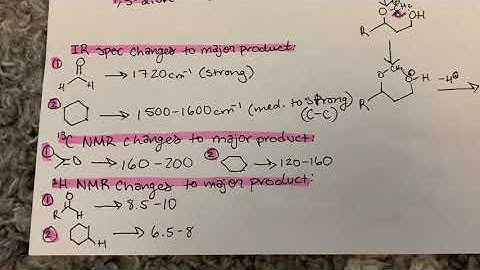 1,3-diol
IR spec changes to major product:
① O H H → 1720cm⁻¹ (strong)
② → 1500-1600cm⁻¹ (med. to strong)
(C-C)
¹³C NMR changes to major product:
① O → 160-200 ② → 120-160
¹H NMR changes to major product:
① O R H → 8.5-10
② H → 6.5-8
OH
R
O
R
H